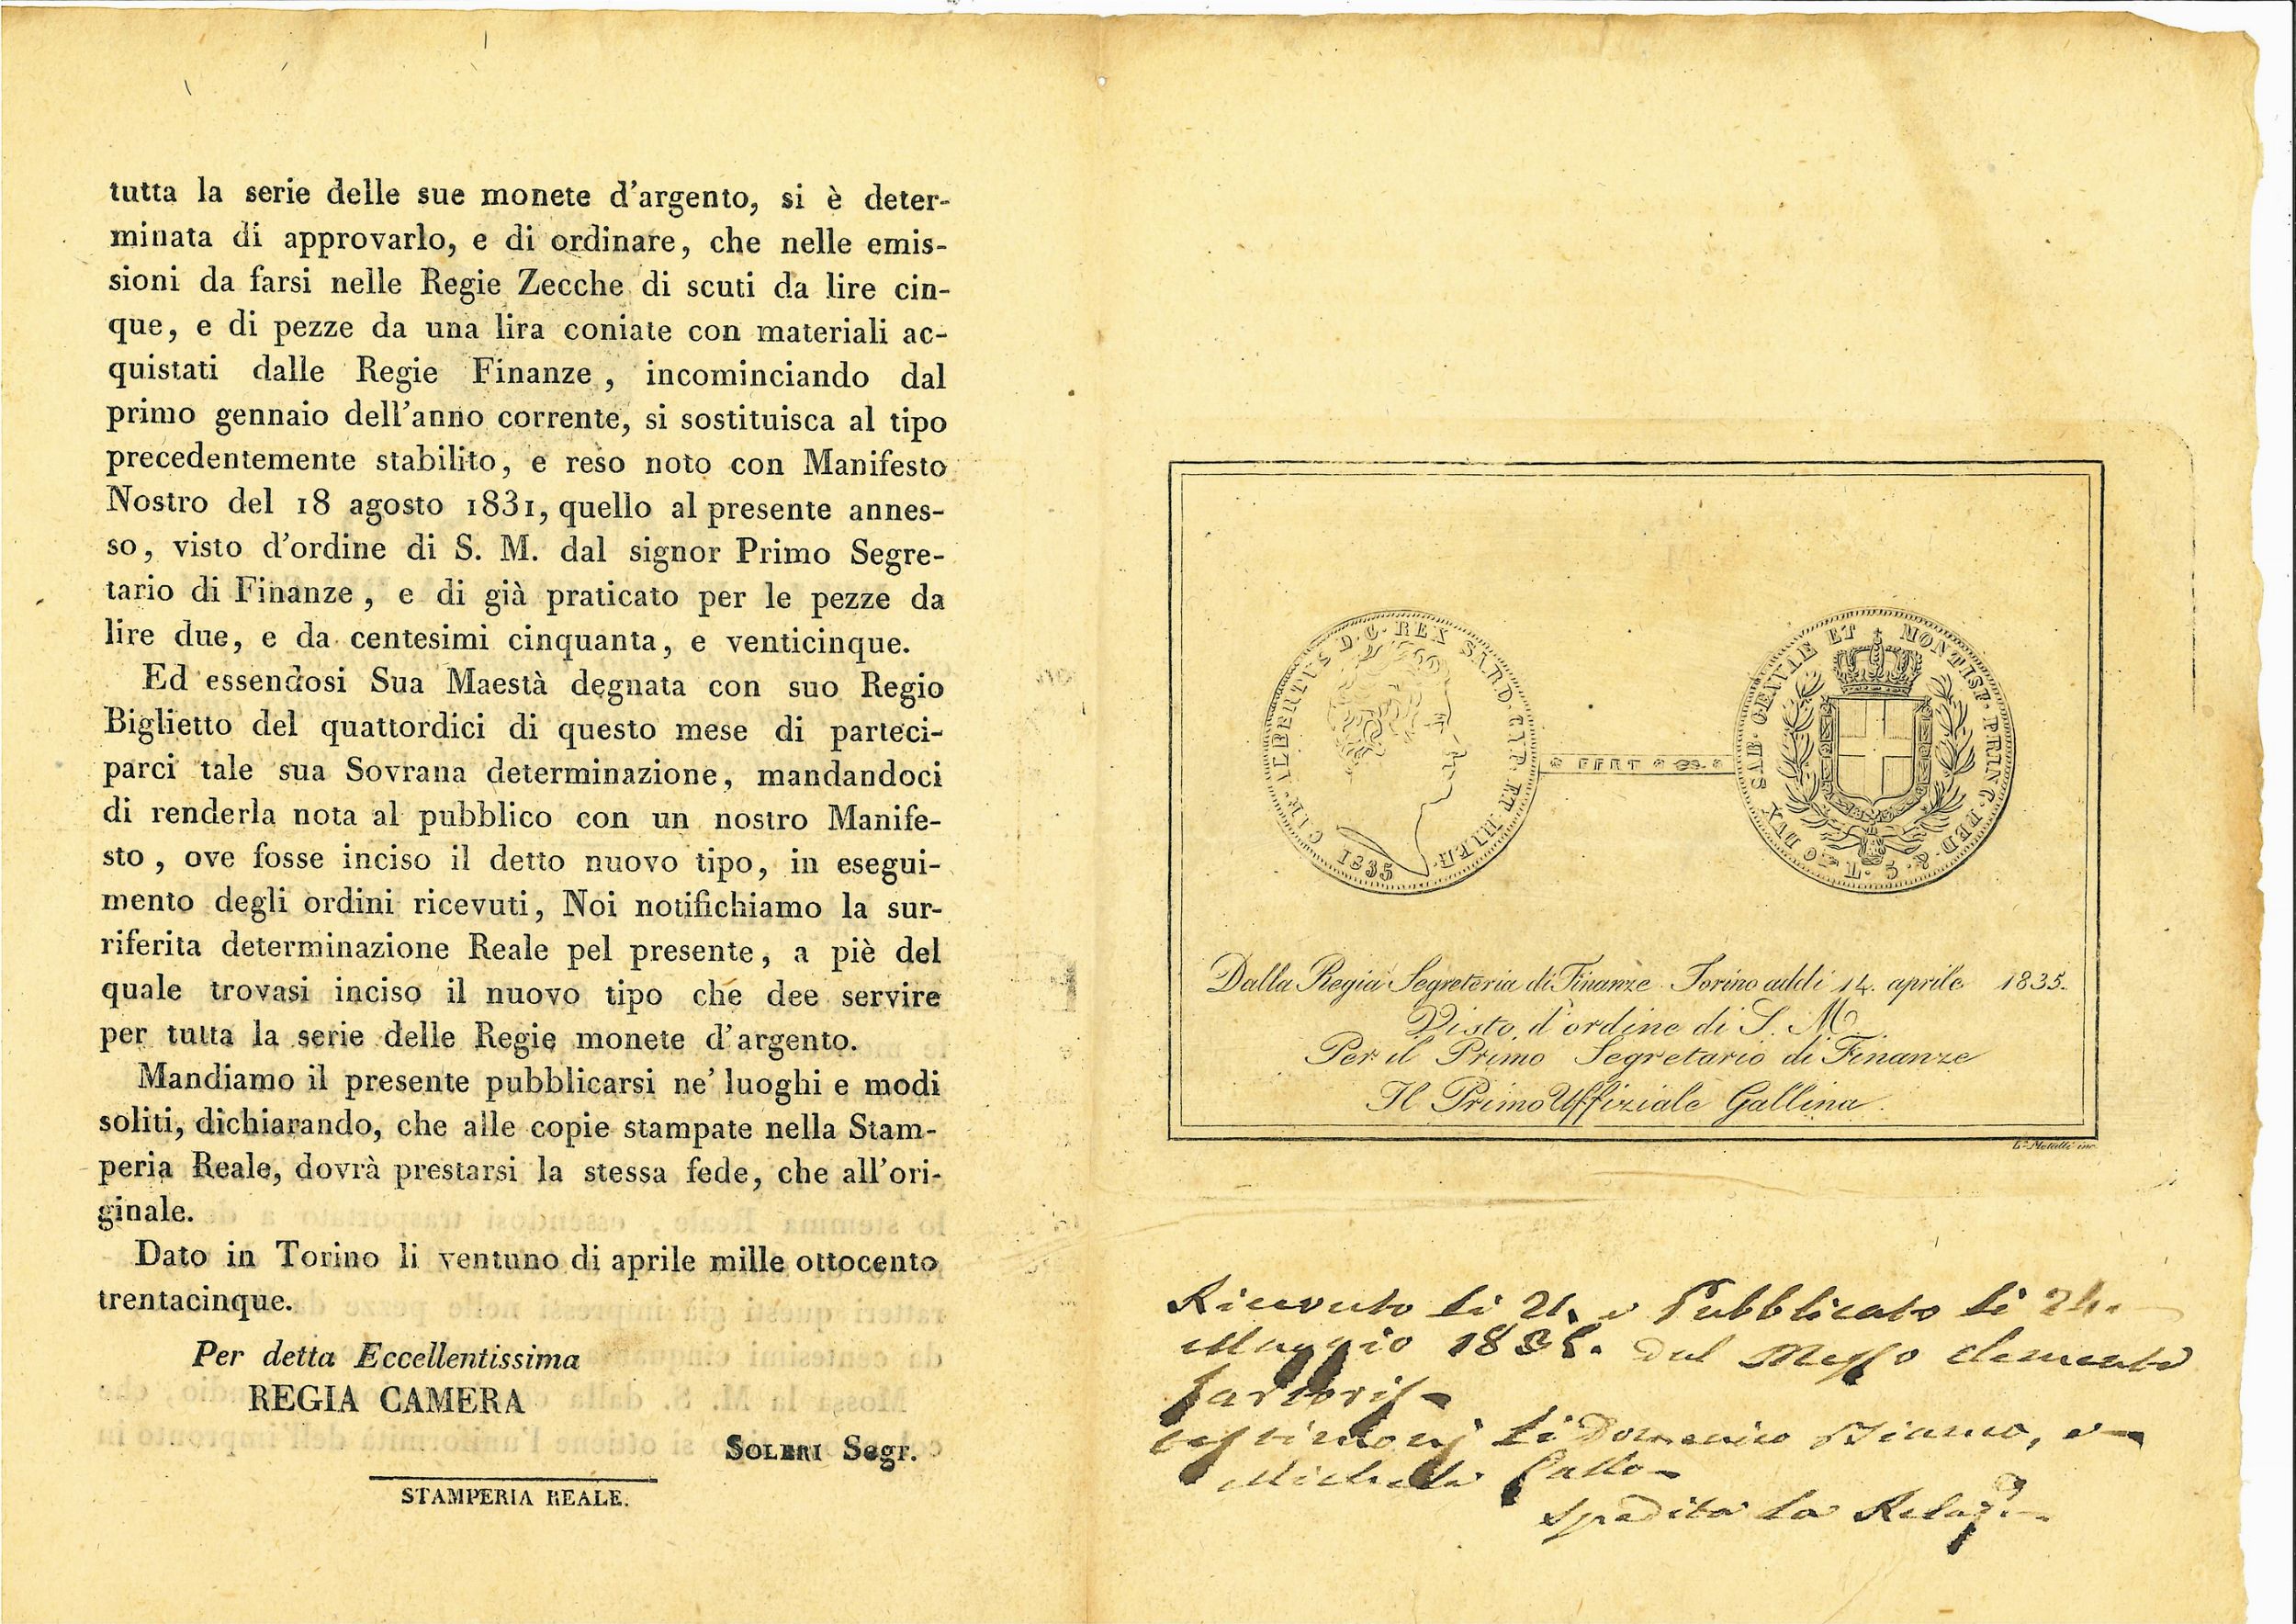 tutta la serie delle sue monete d'argento, si è deter-
minata di approvarlo, e di ordinare, che nelle emis-
sioni da farsi nelle Regie Zecche di scuti da lire cin-
que, e di pezze da una lira coniate con materiali ac-
quistati dalle Regie Finanze, incominciando dal
primo gennaio dell'anno corrente, si sostituisca al tipo
precedentemente stabilito, e reso noto con Manifesto
Nostro del 18 agosto 1831, quello al presente annes-
so, visto d'ordine di S. M. dal signor Primo Segre-
tario di Finanze, e di già praticato per le pezze da
lire due, e da centesimi cinquanta, e venticinque.
Ed essendosi Sua Maestà degnata con suo Regio
Biglietto del quattordici di questo mese di parteci-
parci tale sua Sovrana determinazione, mandandoci
di renderla nota al pubblico con un nostro Manife-
sto, ove fosse inciso il detto nuovo tipo, in esegui-
mento degli ordini ricevuti, Noi notifichiamo la sur-
riferita determinazione Reale pel presente, a piè del
quale trovasi inciso il nuovo tipo che dee servire
per tutta la serie delle Regie monete d'argento.
Mandiamo il presente pubblicarsi ne' luoghi e modi
soliti, dichiarando, che alle copie stampate nella Stam-
peria Reale, dovrà prestarsi la stessa fede, che all'ori-
ginale.
Dato in Torino li ventuno di aprile mille ottocento
trentacinque.
Per detta Eccellentissima
REGIA CAMERA
SOLERI Segr.
STAMPERIA REALE.
CAR·ALBERTVS D·G·REX SARD·CYP·ET HIER·
1835
FERT
DVX SAB·GENVAE ET MONTISP·PRINC·PED·&·
L·5·
Dalla Regia Segreteria di Finanze Torino addi 14. aprile 1835.
Visto d'ordine di S. M.
Per il Primo Segretario di Finanze
Il Primo Uffiziale Gallina.
Ricevuto li 21. e Pubblicato li 24.
Maggio 1835. dal Messo clemente
li Domenico
Michele Gallo
Spedita la Relaz.